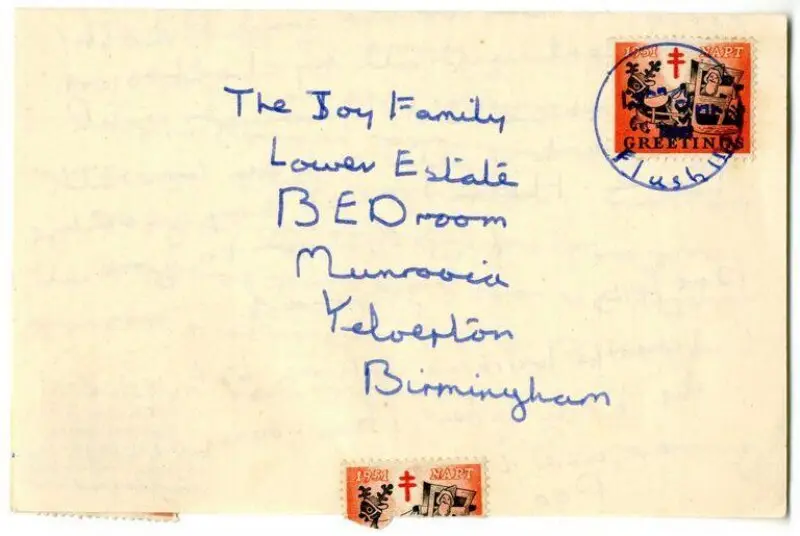 1951 NAPT
GREETINGS
Flusbu
The Joy Family
Lower Estate
BEDroom
Munrovia
Yelverton
Birmingham
1951 NAPT